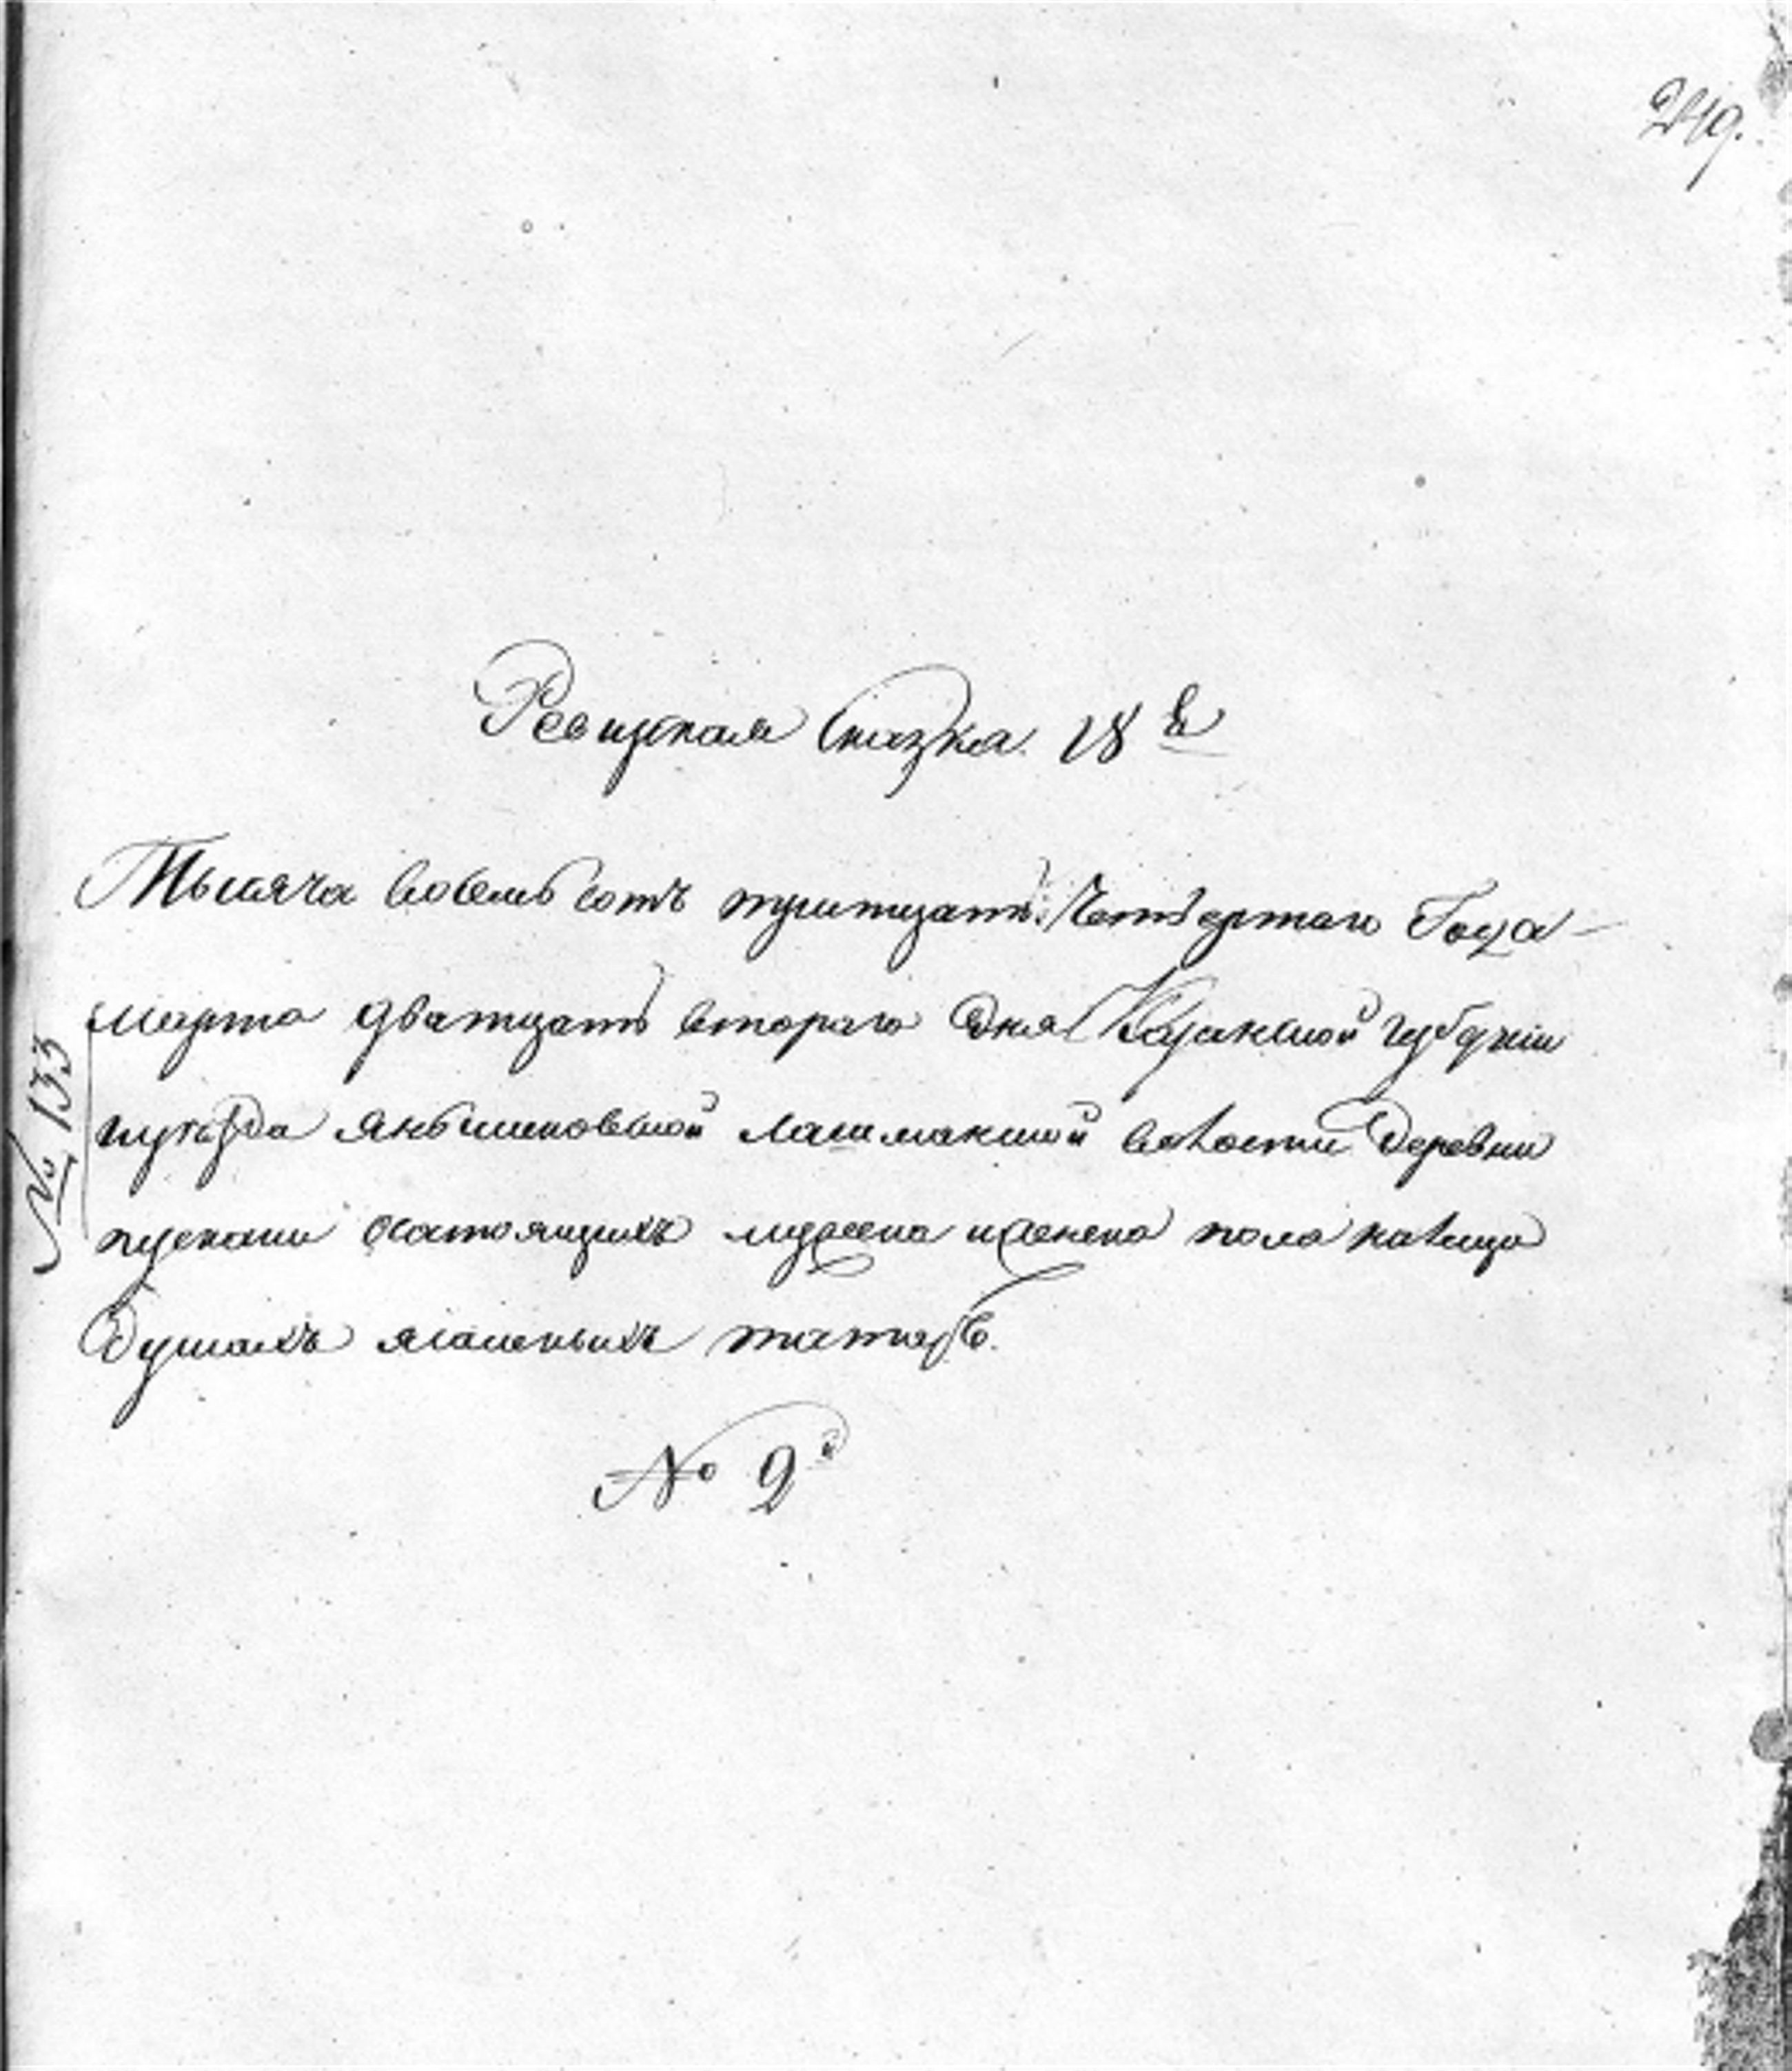 249.
Ревицкая Сказка. 18
Тысяча восемь сотъ тритцать четвертаго Года
марта дватцать втораго Дня Казанской губерніи
уезда лашманской волости Деревни
состоящихъ мужеска и женска пола налицо
Душахъ ясашныхъ татаръ.
№ 2й
№ 133